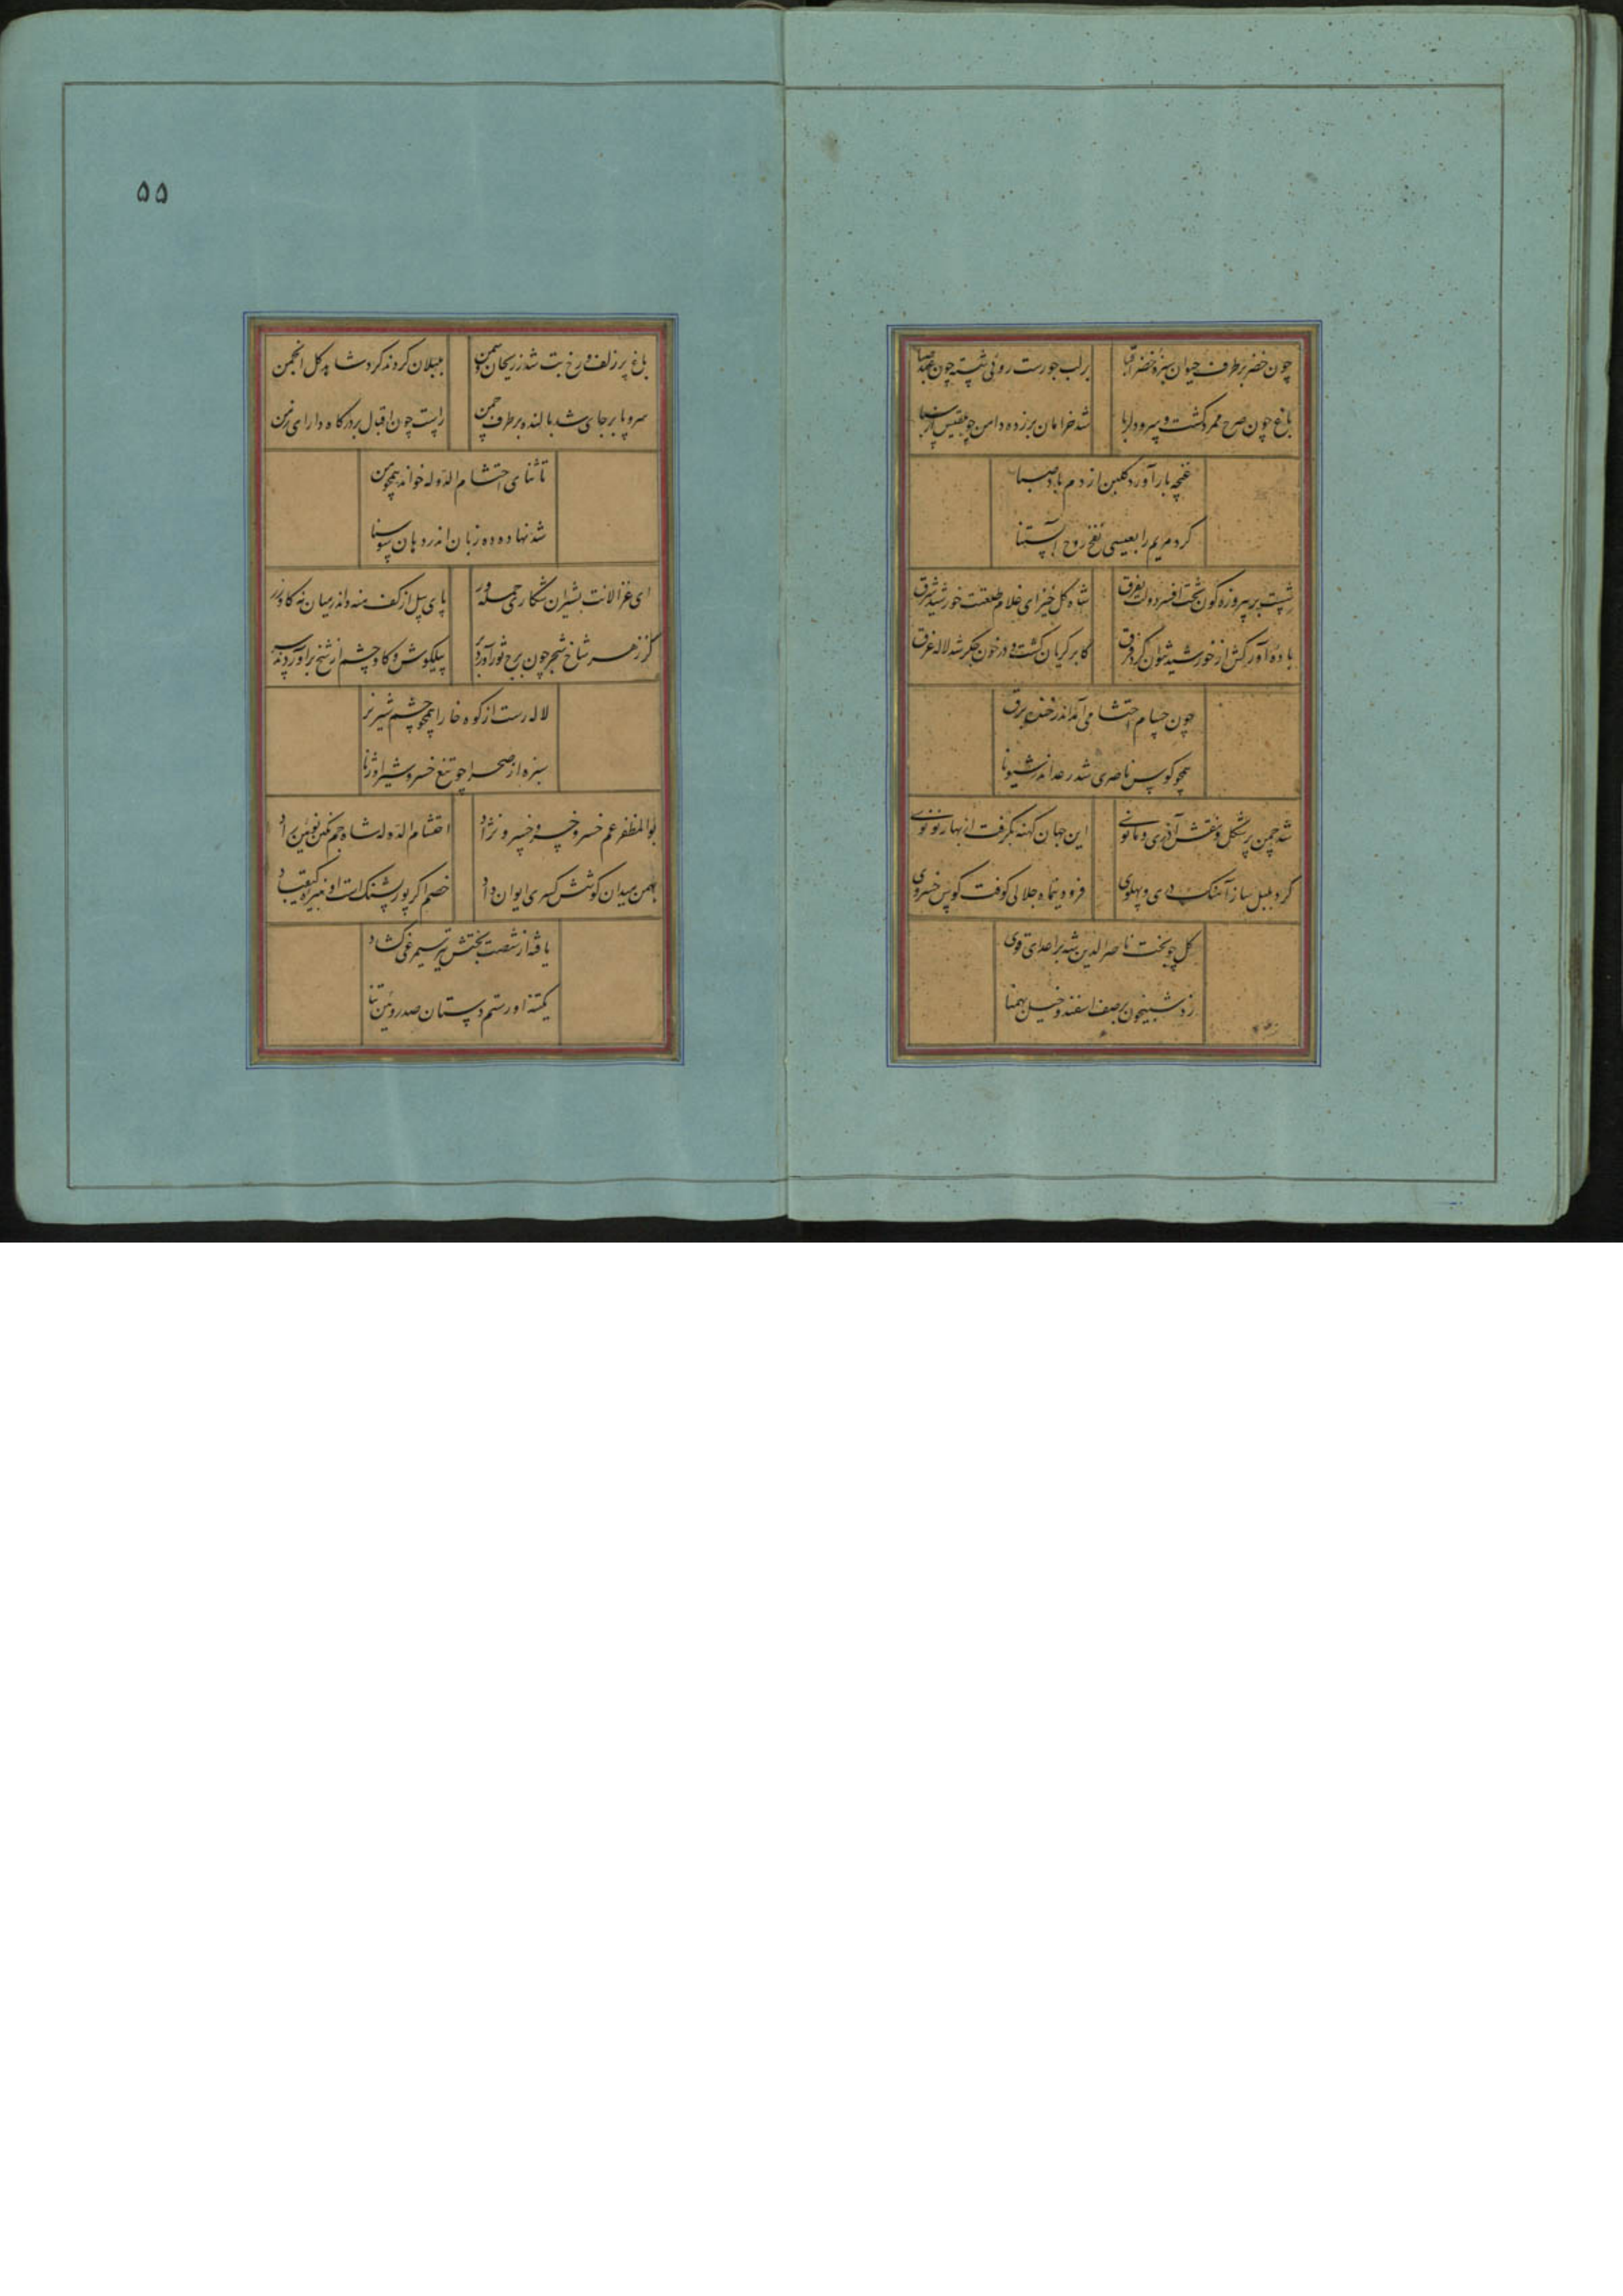 چون خضر بر طرف حیوان سبزه خضرا قبا
بر لب جو رست روئی شسته چون
باغ چون صرح ممرد گشت و سرو دلربا
شد خرامان برزده دامن چو بلقیس از سبا
غنچه بار آورد گلبن از دم باد صبا
کرد مریم را بعیسی نفخ روح آبستنا
پیروزه گون تخت افسر دولت بفرق
شاه گل خیز ای غلام طلعتت خورشید شرق
باده آور کش از خورشید نتوان کرد فرق
کابر گریان گشت و در خون جگر شد لاله غرق
چون حسام احتشامی آمد اندر خنده برق
همچو کوس ناصری شد رعد اندر شیونا
شد چمن پر شکل و نقش آذری و مانوی
این جهان کهنه بگرفت از بهار نو نوی
کرد بلبل ساز آهنگ دری و پهلوی
فرودینماه جلالی کوفت کوس خسروی
گل چو بخت ناصرالدین شه بر اعدای قوی
زد شبیخون بر صف اسفند و خیل بهمنا
۵۵
باغ پر زلف و رخ بت شد ز ریحان و سمن
بلبلان کردند گرد شاهد گل انجمن
سرو پا بر جای شد بالنده بر طرف چمن
راست چون اقبال بر درگاه دارای زمن
تا ثنای احتشام الدوله خواند همچو من
شد نهاده ده زبان اندر دهان سوسنا
ای غزالانت بشیران شکاری حمله ور
پای پیل از کف منه واندر میان نه گاو زر
کز زهر شاخ شجر چون برج ثور آورد بر
پیلگوش و گاوچشم از شخ برآوردند سر
لاله رست از کوه خارا همچو چشم شیر نر
سبزه از صحرا چو تیغ خسرو شیر اوژنا
بوالمظفر عم خسرو خسرو خسرو نژاد
احتشام الدوله شاه جم نگین نوئین راد
بهمن میدان کوشش کسری ایوان داد
خصم اگر پور پشنگ است او نبیره کیقباد
یافه از شصت بختش تیر سیمرغی گشاد
یکتنه او رستم دستان صد روئین تنا